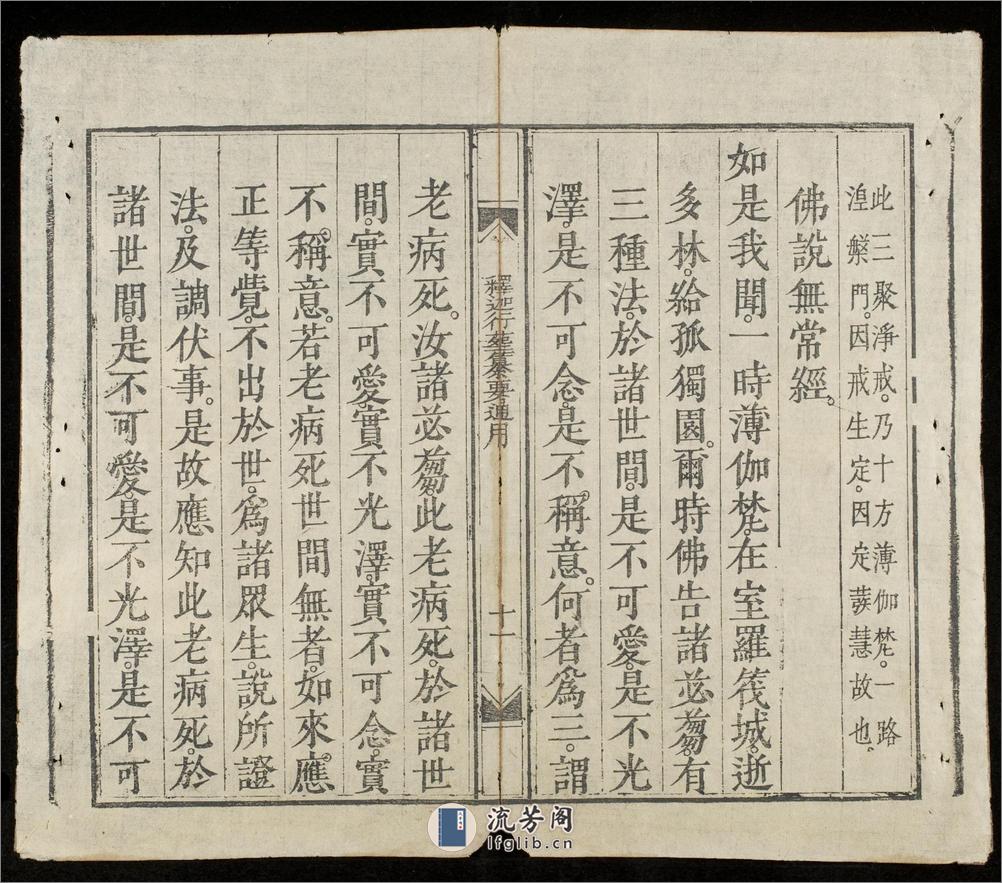 此三聚淨戒。乃十方薄伽梵。一路
湼槃門。因戒生定。因定發慧故也。
佛說無常經。
如是我聞。一時薄伽梵。在室羅筏城。逝
多林。給孤獨園。爾時佛告諸苾蒭。有
三種法。於諸世間。是不可愛。是不光
澤。是不可念。是不稱意。何者為三。謂
釋迦行葬纂要通用
十一
老病死。汝諸苾蒭。此老病死。於諸世
間。實不可愛。實不光澤。實不可念。實
不稱意。若老病死世間無者。如來。應
正等覺。不出於世。為諸眾生。說所證
法。及調伏事。是故應知此老病死。於
諸世間。是不可愛。是不光澤。是不可
流芳阁
lfglib.cn